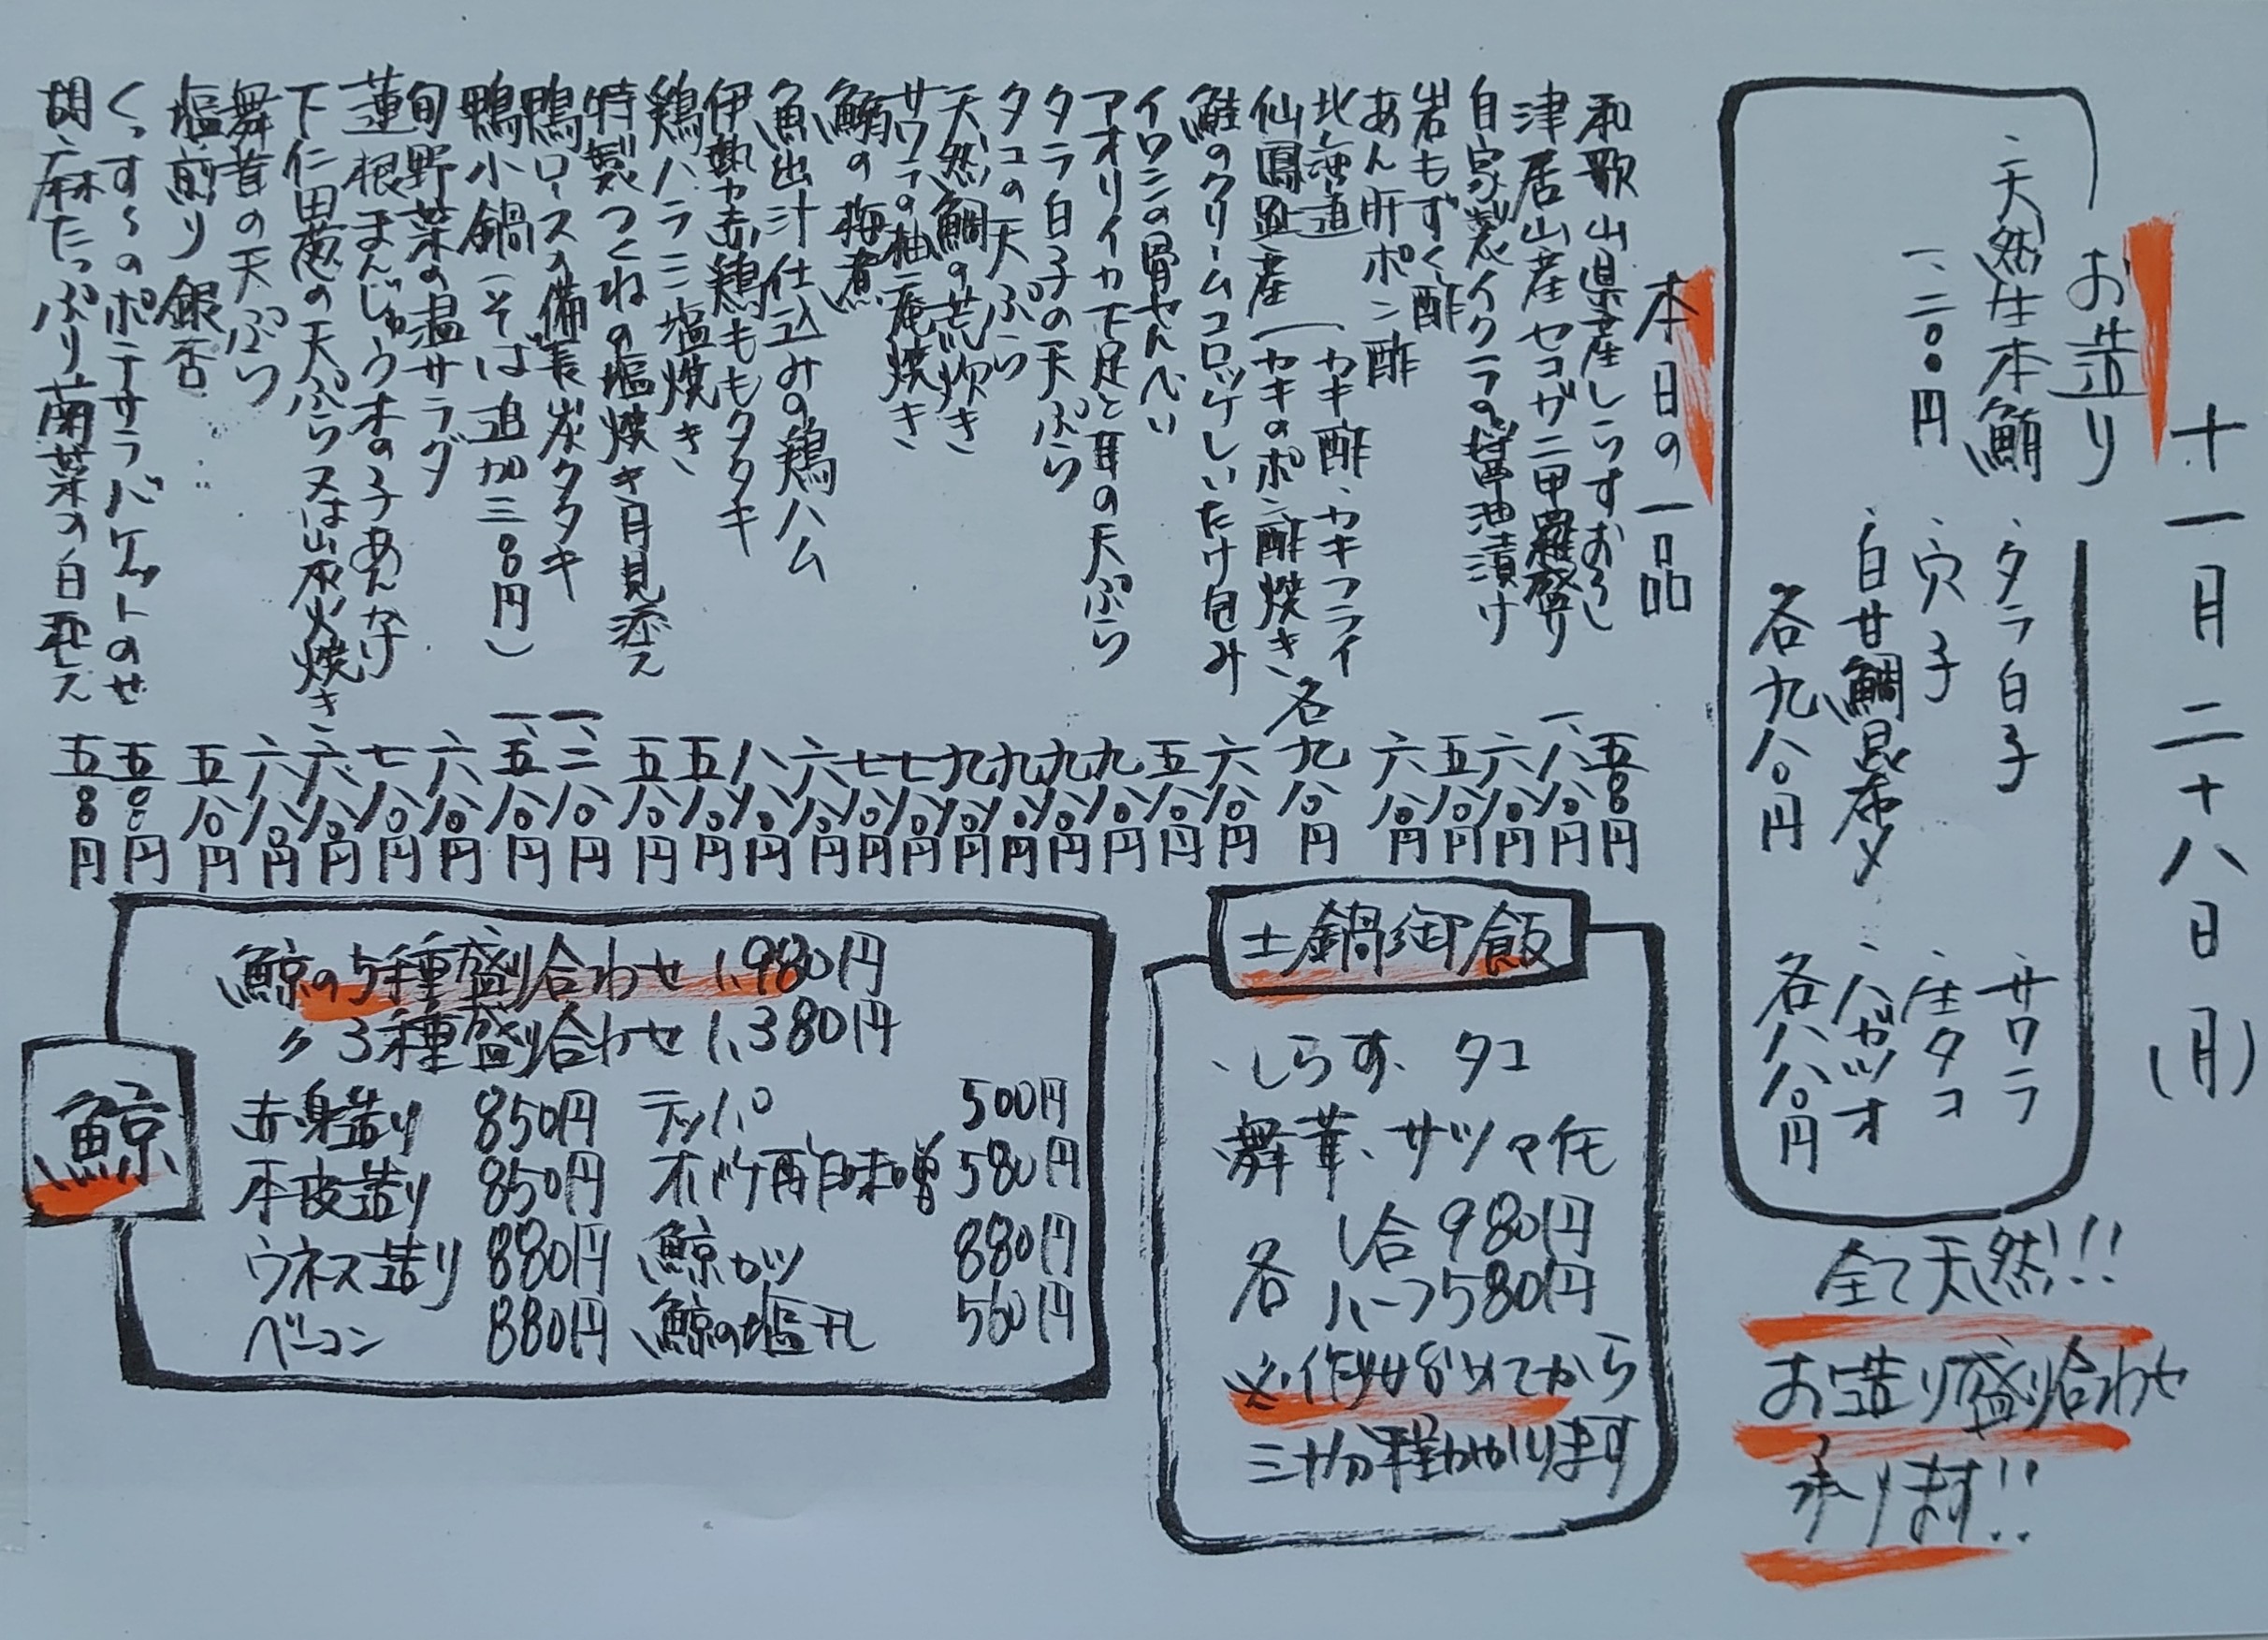 十一月二十八日(月)
お造り
・天然生本鮪
一、二〇〇円
・タラ白子
・穴子
・白甘鯛昆布〆
各九八〇円
・サワラ
・生タコ
・ハガツオ
各八八〇円
全て天然!!
お造り盛り合わせ
承ります!!
本日の一品
和歌山県産しらすおろし 五八〇円
津居山産セコガニ甲羅盛り 一、八八〇円
自家製イクラの醤油漬け 六八〇円
岩もずく酢 五八〇円
あん肝ポン酢 六八〇円
北海道
仙鳳趾産(カキ酢、カキフライ
カキのポン酢焼き、各九八〇円
鮭のクリームコロッケしいたけ包み 六八〇円
イワシの骨せんべい 五八〇円
アオリイカ下足と耳の天ぷら 九八〇円
タラ白子の天ぷら 九八〇円
タコの天ぷら 九八〇円
天然鯛の荒炊き 九八〇円
サワラの柚庵焼き 七八〇円
鰯の梅煮 七八〇円
魚出汁仕込みの鶏ハム 六八〇円
伊勢赤鶏ももタタキ 八八〇円
鶏ハラミ塩焼き 五八〇円
特製つくねの塩焼き月見添え 五八〇円
鴨ロースの備長炭タタキ 一、二八〇円
鴨小鍋(そば追加三〇〇円) 一、五八〇円
旬野菜の温サラダ 六八〇円
蓮根まんじゅう木の子あんかけ 七八〇円
下仁田葱の天ぷら又は山水火焼き 六八〇円
舞茸の天ぷら 六八〇円
塩煎り銀杏 五八〇円
くっすぃのポテサラバゲットのせ 五八〇円
胡麻たっぷり菊菜の白和え 五八〇円
土鍋御飯
・しらす、タコ
舞茸、サツマ芋
各 1合980円
ハーフ580円
※作り始めてから
三十分程かかります
鯨
鯨の5種盛り合わせ 1,980円
〃 3種盛り合わせ 1,380円
赤身造り 850円
本皮造り 850円
ウネス造り 880円
ベーコン 880円
テッパ 500円
オバケ酢味噌 580円
鯨カツ 880円
鯨の塩干し 560円